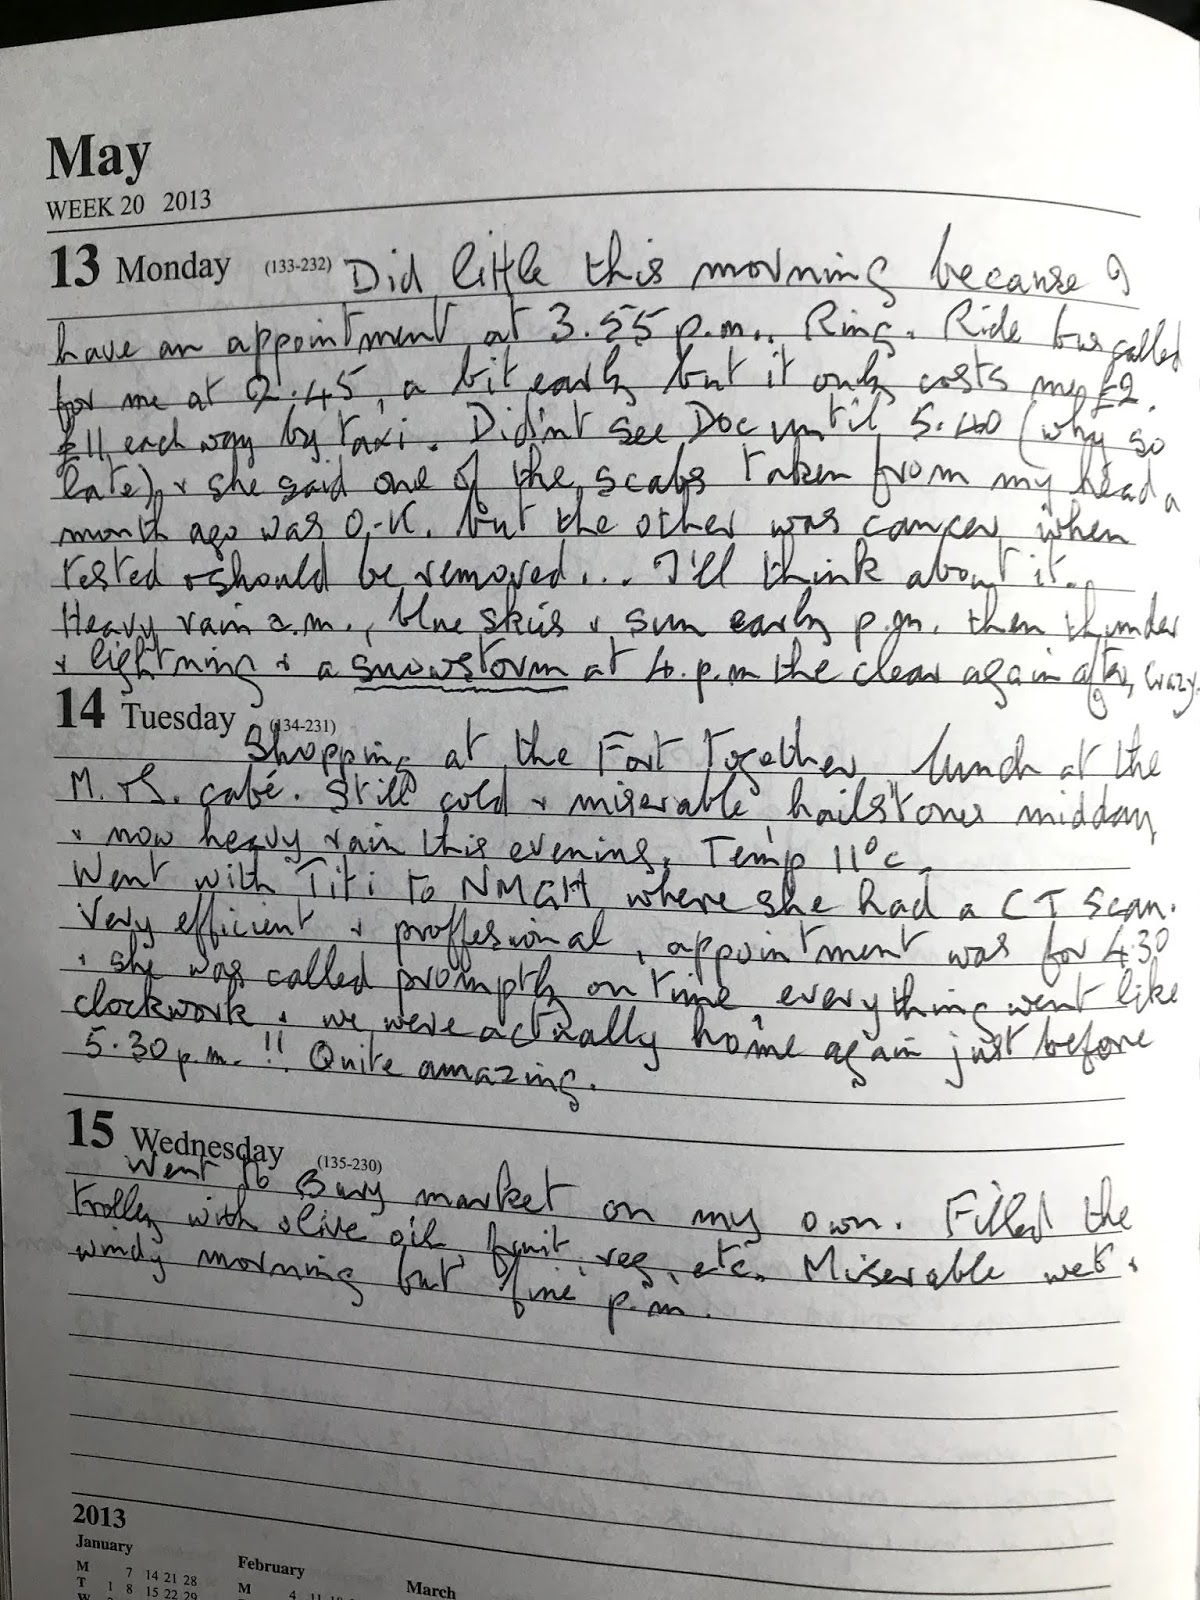 May
WEEK 20 2013
13 Monday (133-232) Did little this morning because I
have an appointment at 3.55 p.m.. Ring. Ride bus called
for me at 2.45, a bit early but it only costs me £2.
£11 each way by taxi. Didn't see Doc until 5.40 (why so
late), & she said one of the scabs taken from my head a
month ago was O.K. but the other was cancer when
tested & should be removed... I'll think about it.
Heavy rain a.m., blue skies & sun early p.m. then thunder
& lightning & a snowstorm at 4. p.m the clear again after, crazy.
14 Tuesday (134-231)
Shopping at the Fort together, lunch at the
M. S. café. Still cold & miserable, hailstones midday,
& now heavy rain this evening, Temp 11°c.
Went with Titi to NMGH where she had a CT scan.
Very efficient & proffesional, appointment was for 4.30
& she was called promptly on time everything went like
clockwork & we were actually home again just before
5.30 p.m. !! Quite amazing.
15 Wednesday (135-230)
Went to Bury market on my own. Filled the
trolley with olive oil, fruit, veg, etc. Miserable wet &
windy morning but fine p.m.
2013
January
M 7 14 21 28
T 1 8 15 22 29
February
M 4 11
March